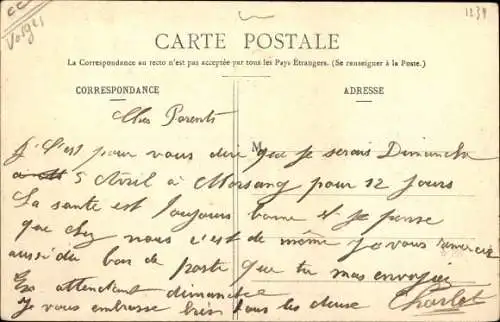 CC
Vosges
1234
CARTE POSTALE
La Correspondance au recto n'est pas acceptée par tous les Pays Étrangers. (Se renseigner à la Poste.)
CORRESPONDANCE
ADRESSE
Mes Parents
M
J' C'est pour vous dire que je serais Dimanche
5 Avril à Morsang pour 12 jours
La santé est toujours bonne et je pense
que chez nous c'est de même je vous remercie
aussi du bon de poste que tu mas envoyer
En attendant dimanche
Je vous embrasse bien tous les deuse Charlot